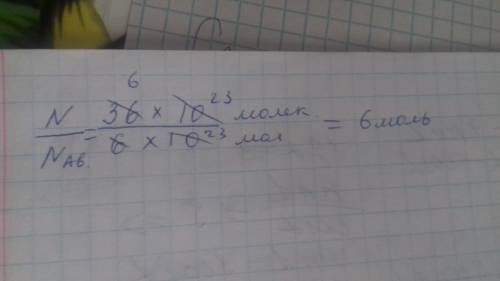 6
N / N_Аб = 36 × 10²³ молек / 6 × 10²³ мол = 6 моль